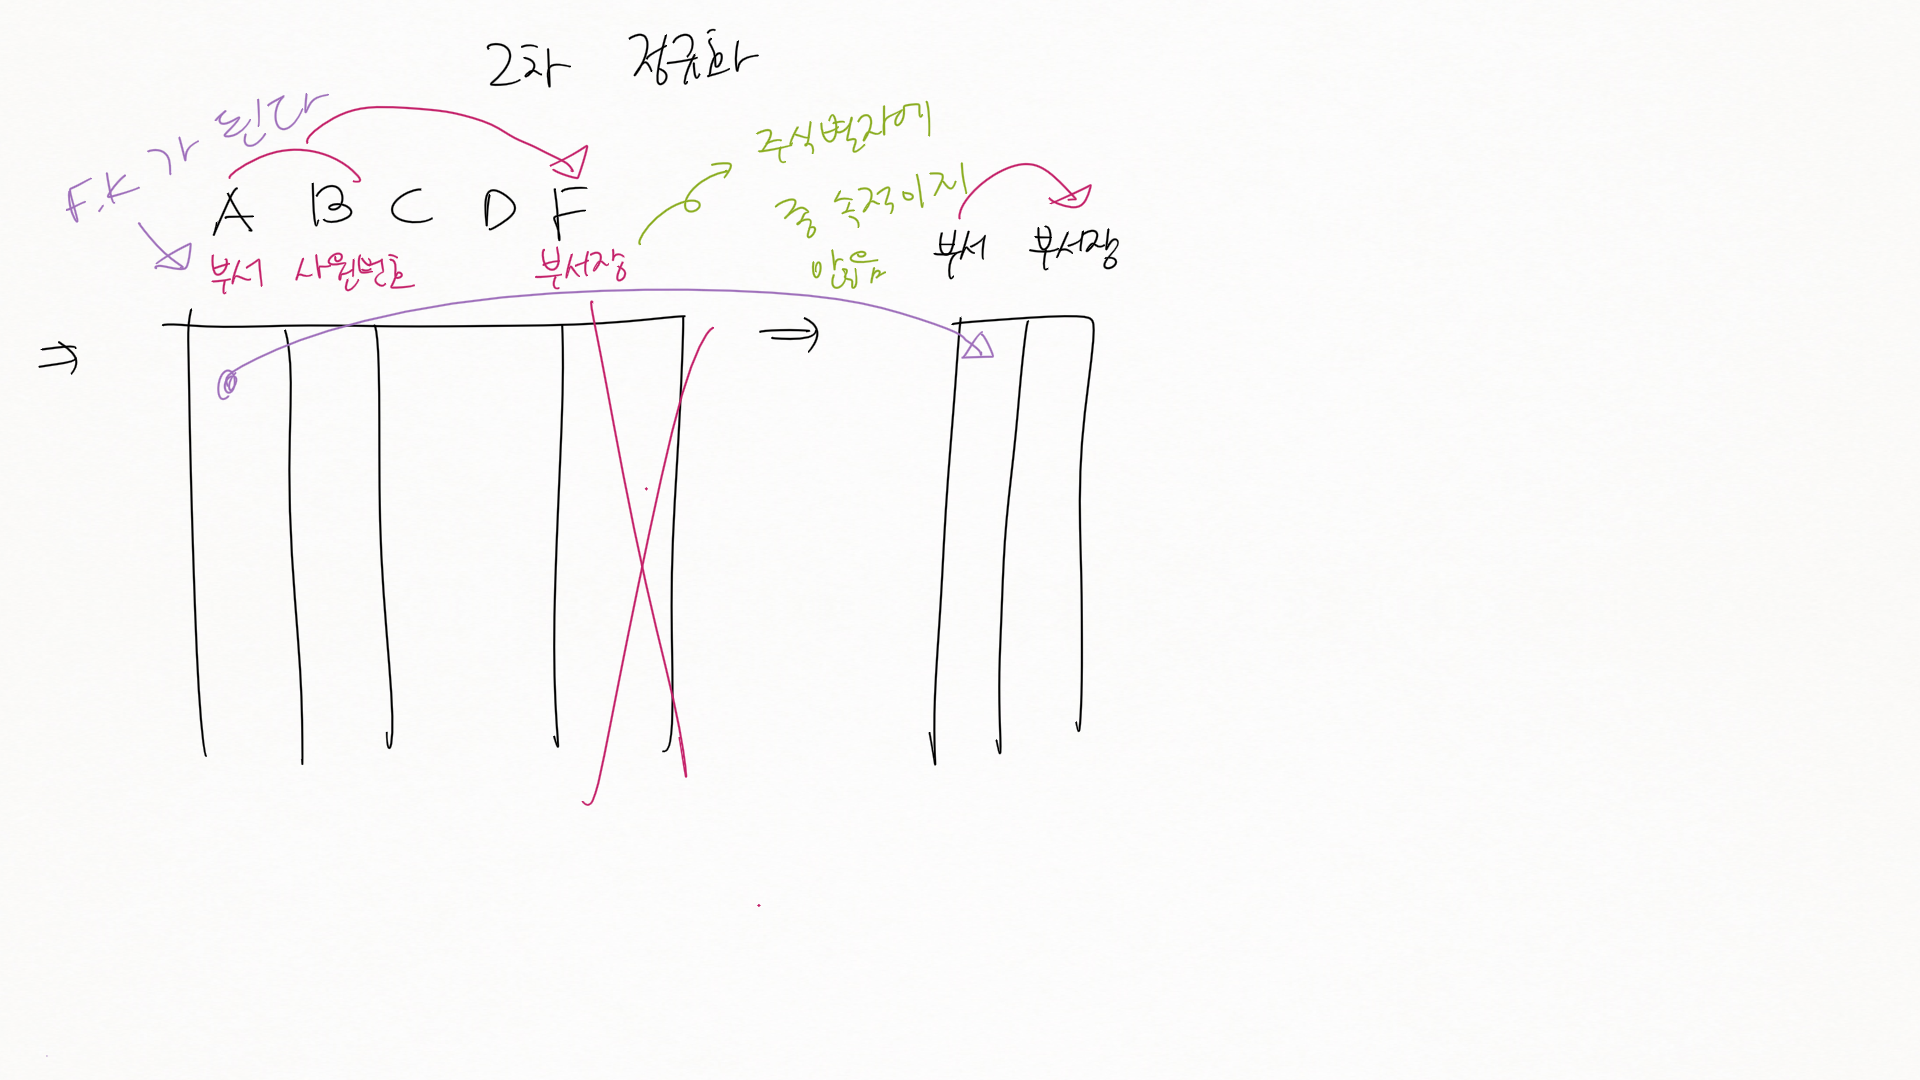 2차 정규화
F.K 가 된다
A B C D F
부서 사원번호 부서장
주식별자에
종속적이지
않음
부서 부서장